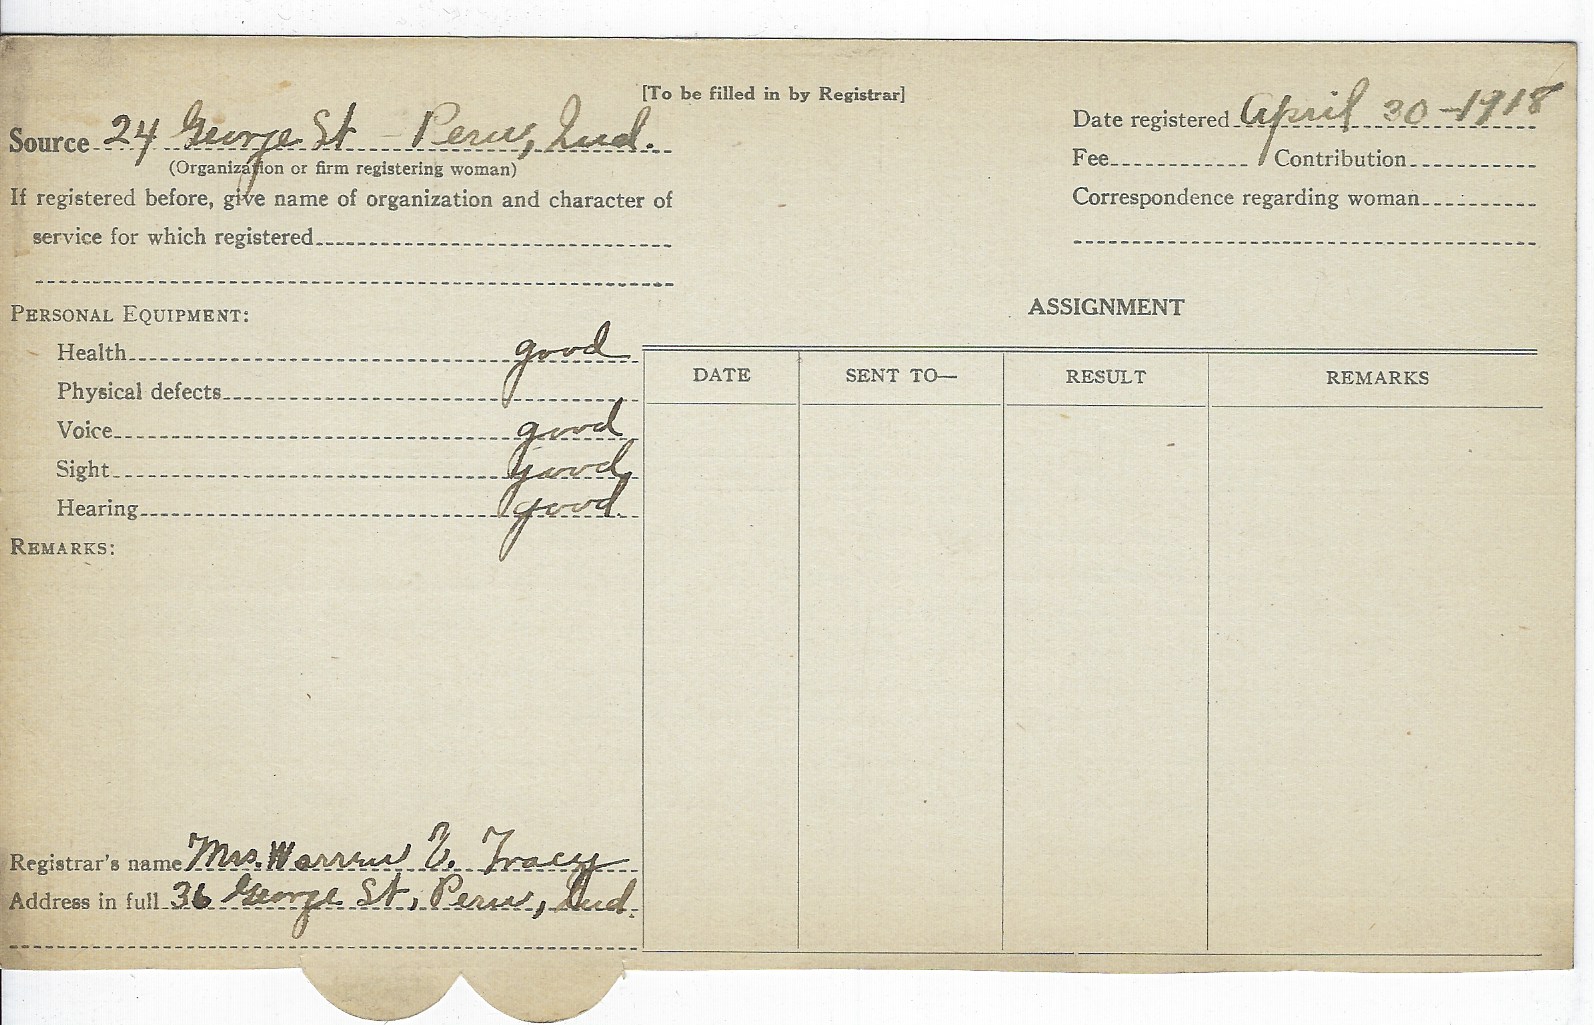 [To be filled in by Registrar]
Source 24 George St - Peru, Ind.
(Organization or firm registering woman)
If registered before, give name of organization and character of
service for which registered
Date registered April 30-1918
Fee Contribution
Correspondence regarding woman
PERSONAL EQUIPMENT:
Health good
Physical defects
Voice good
Sight good
Hearing good
REMARKS:
ASSIGNMENT
DATE SENT TO— RESULT REMARKS
Registrar's name Mrs. Warren V. Tracy
Address in full 36 George St, Peru, Ind.